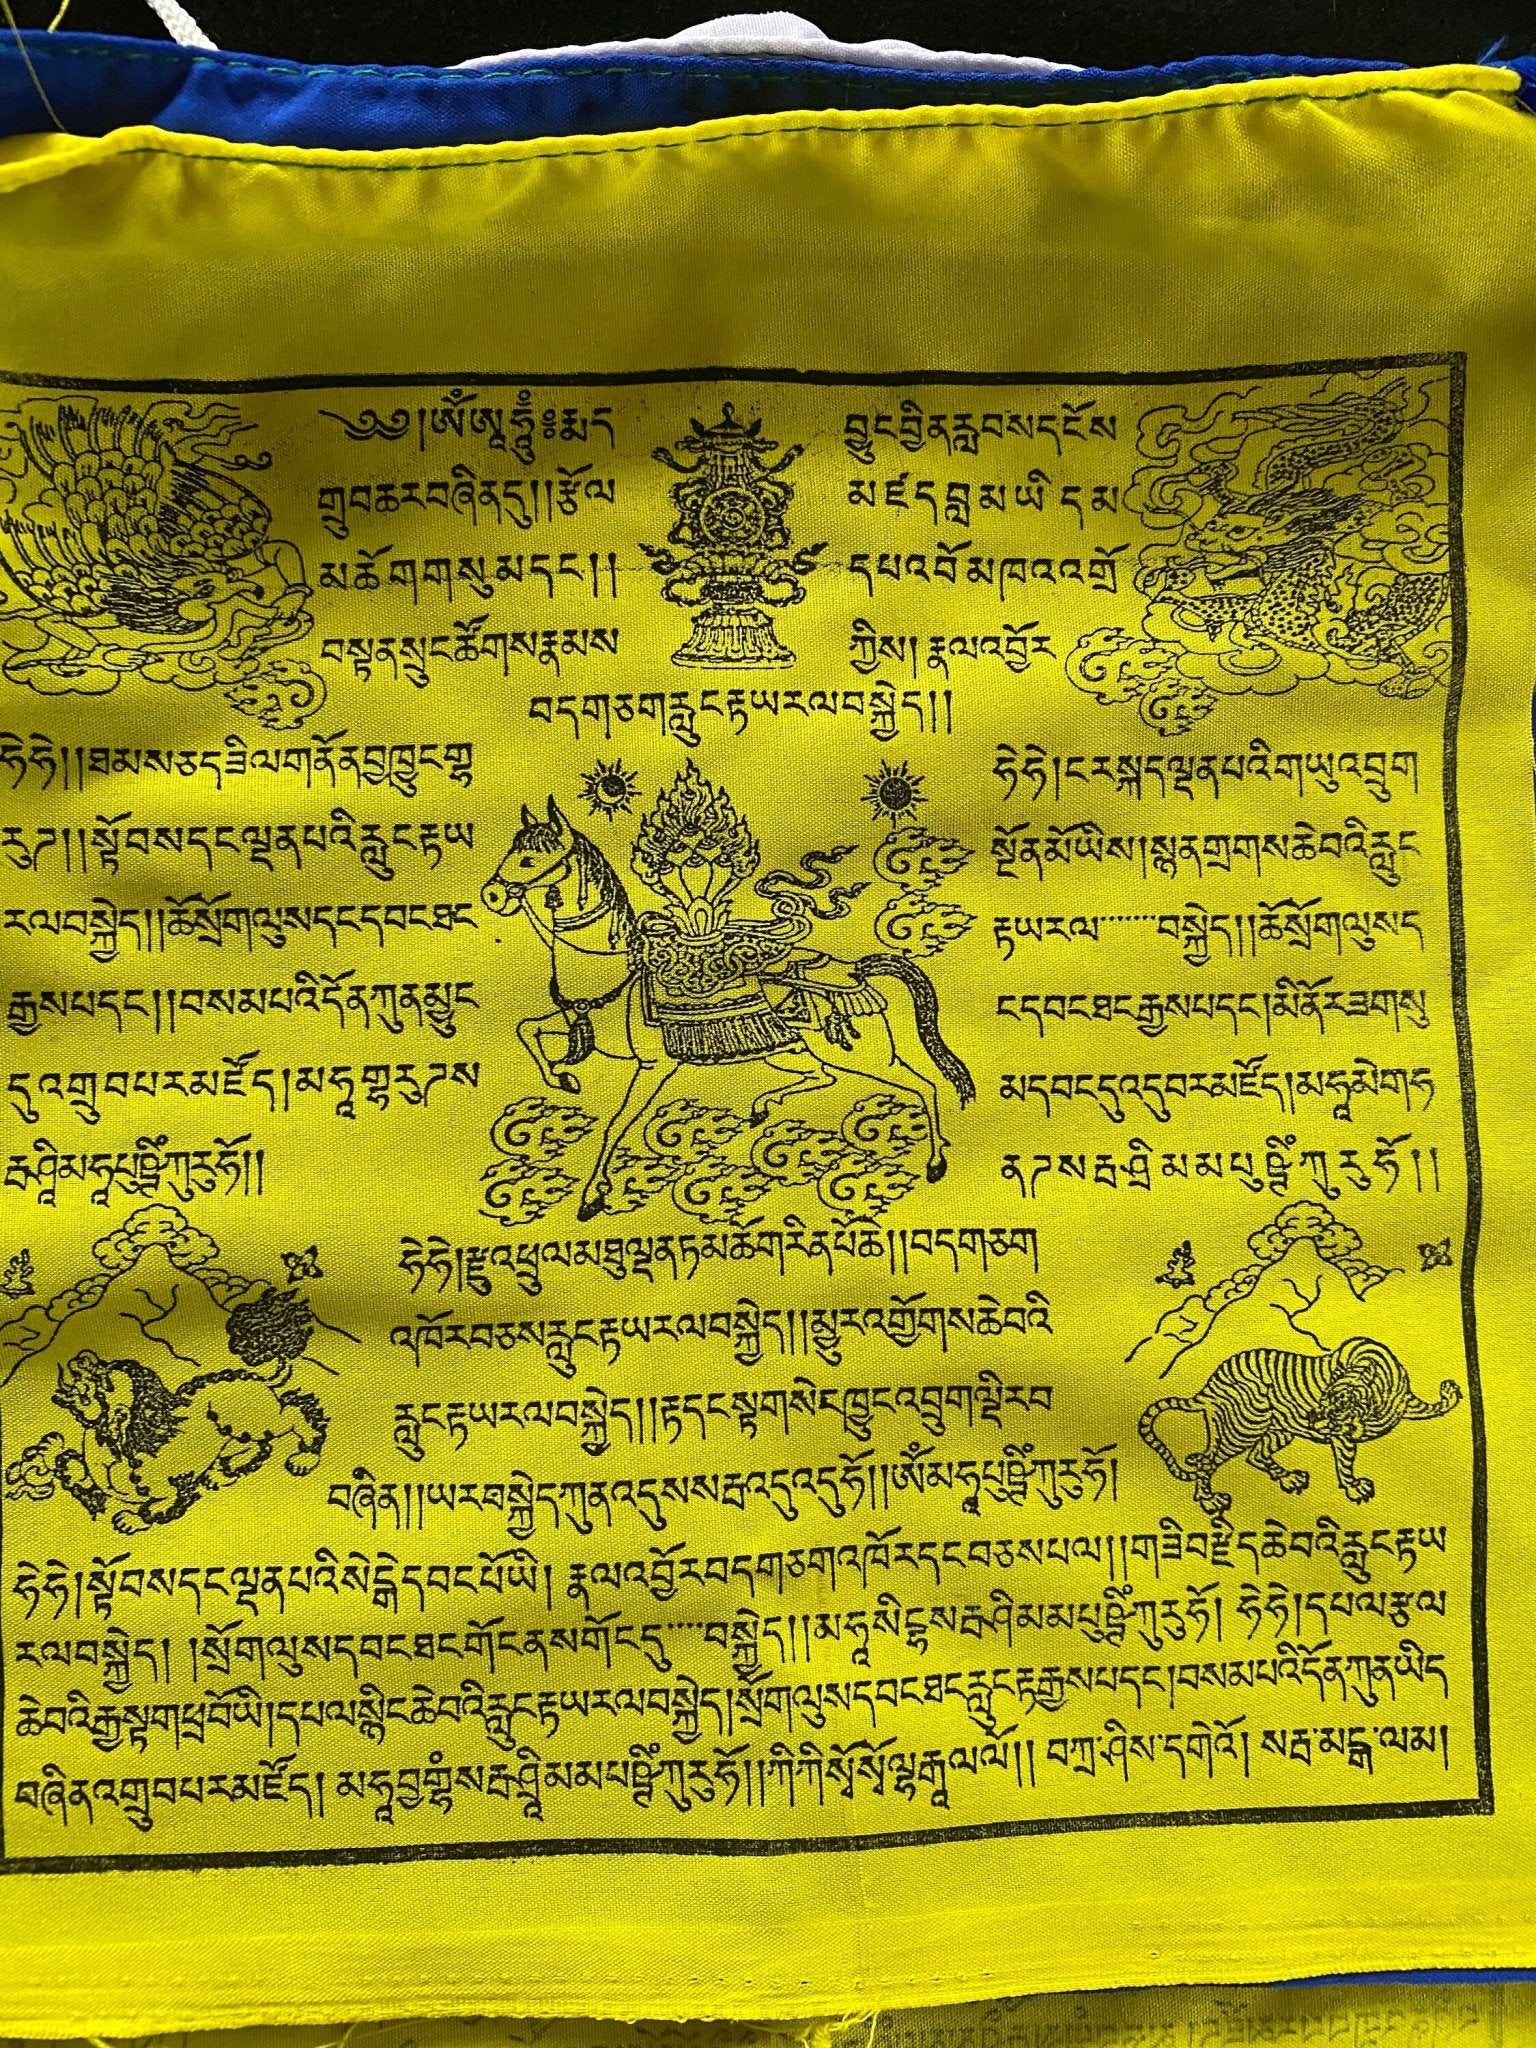 ༄༅། །ཨོཾ་ཨཱཿཧཱུྃ༔རྨད
བྱུངབྱིནརླབསདངོས
གྲུབཆརབཞིནདུ།།རྩོལ
མཛདབླམཡིདམ
མཆོགགསུམདང།།
དཔའབོམཁའའགྲོ
བསྟནསྲུངཚོགསརྣམས
ཀྱིས།རྣལའབྱོར
བདགཅགརླུངརྟཡརལབསྐྱེད།།
ཧེཧེ།།ཐམསཅདཟིལགནོནབྱཁྱུངགྷ
རུཌ།།སྟོབསདངལྡནཔའིརླུངརྟཡ
རལབསྐྱེད།།ཚེསྲོགལུསདངདབངཐང
རྒྱསཔདང།།བསམཔའིདོནཀུནམྱུ​ང
དུའགྲུབཔརམཛོད།མཧཱགྷརུཌས
རྦཤཱིམཧཱཔུཥྚིཾཀུརུཧོ།།
ཧེཧེ།ངརསྐདལྡནཔའིགཡུའབྲུག
སྔོནམོཡིས།སྙནགྲགསཆེབའིརླུང
རྟཡརལ་་་་་་་བསྐྱེད།།ཚེསྲོགལུསད
ངདབངཐངརྒྱསཔདང།མིནོརཟགསུ
མདབངདུའདུབརམཛོད།མཧཱམེགཧ
ནཌསརྦཤྲིམམཔུཥྚིཾཀུརུཧོ།།
ཧེཧེ།རྫུའཕྲུལམཐུལྡནཏམཆོགརིནཔོཆེ།།བདགཅག
འཁོརབཅསརླུངརྟཡརལབསྐྱེད།།མྱུརའགྱོགསཆེབའི
རླུངརྟཡརལབསྐྱེད།།རྟདངསྟགསེངཁྱུངའབྲུགལྡིརབ
བཞིན།།ཡརབསྐྱེདཀུནའདུསསརྦའདུའདུཧོ།།ཨོཾམཧཱཔུཥྚིཾཀུརུཧོ།
ཧེཧེ།སྟོབསདངལྡནཔའིསེངྒེདབངཔོཡི། རྣལའབྱོརབདགཅགའཁོརདངབཅསཔལ།།གཟིབརྗིདཆེབའིརླུངརྟཡ
རལབསྐྱེད། །སྲོགལུསདབངཐངགོངནསགོངདུ་་་་་བསྐྱེད།།མཧཱསིངྷསརྦཤིམམཔུཥྚིཾཀུརུཧོ། ཧེཧེ།དཔལརྩལ
ཆེབའིརྒྱསྟགཕྲབོཡི།དཔལསྙིངཆེབའིརླུངརྟཡརལབསྐྱེད།སྲོགལུསདབངཐངརླུངརྟརྒྱསཔདང།བསམཔའིདོནཀུནཡིད
བཞིནའགྲུབཔརམཛོད། མཧཱབྱགྷྲཾསརྦཤྲཱིམམཔཥྚིཾཀུརུཧོ།།ཀིཀིསྭོསྭོལྷརྒྱལལོ།། བཀྲ་ཤིས་དགེའོ། སརྦ་མངྒ་ལམ།